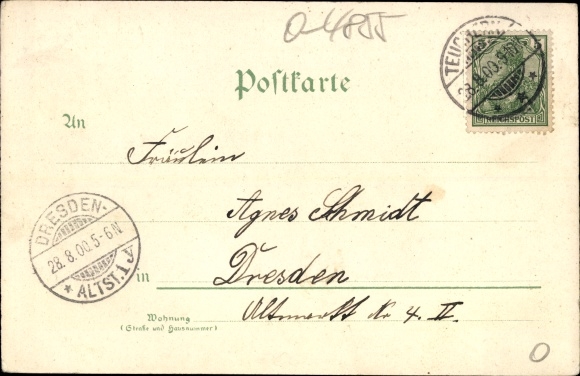 0-4855
Postkarte
TEUCHERN
28.8.00.
REICHSPOST
An
Fräulein
Agnes Schmidt
DRESDEN-
28.8.00.5-6.N
* ALTST.1
in Dresden
Altmarkt No 4. II.
Wohnung
(Straße und Hausnummer)
0